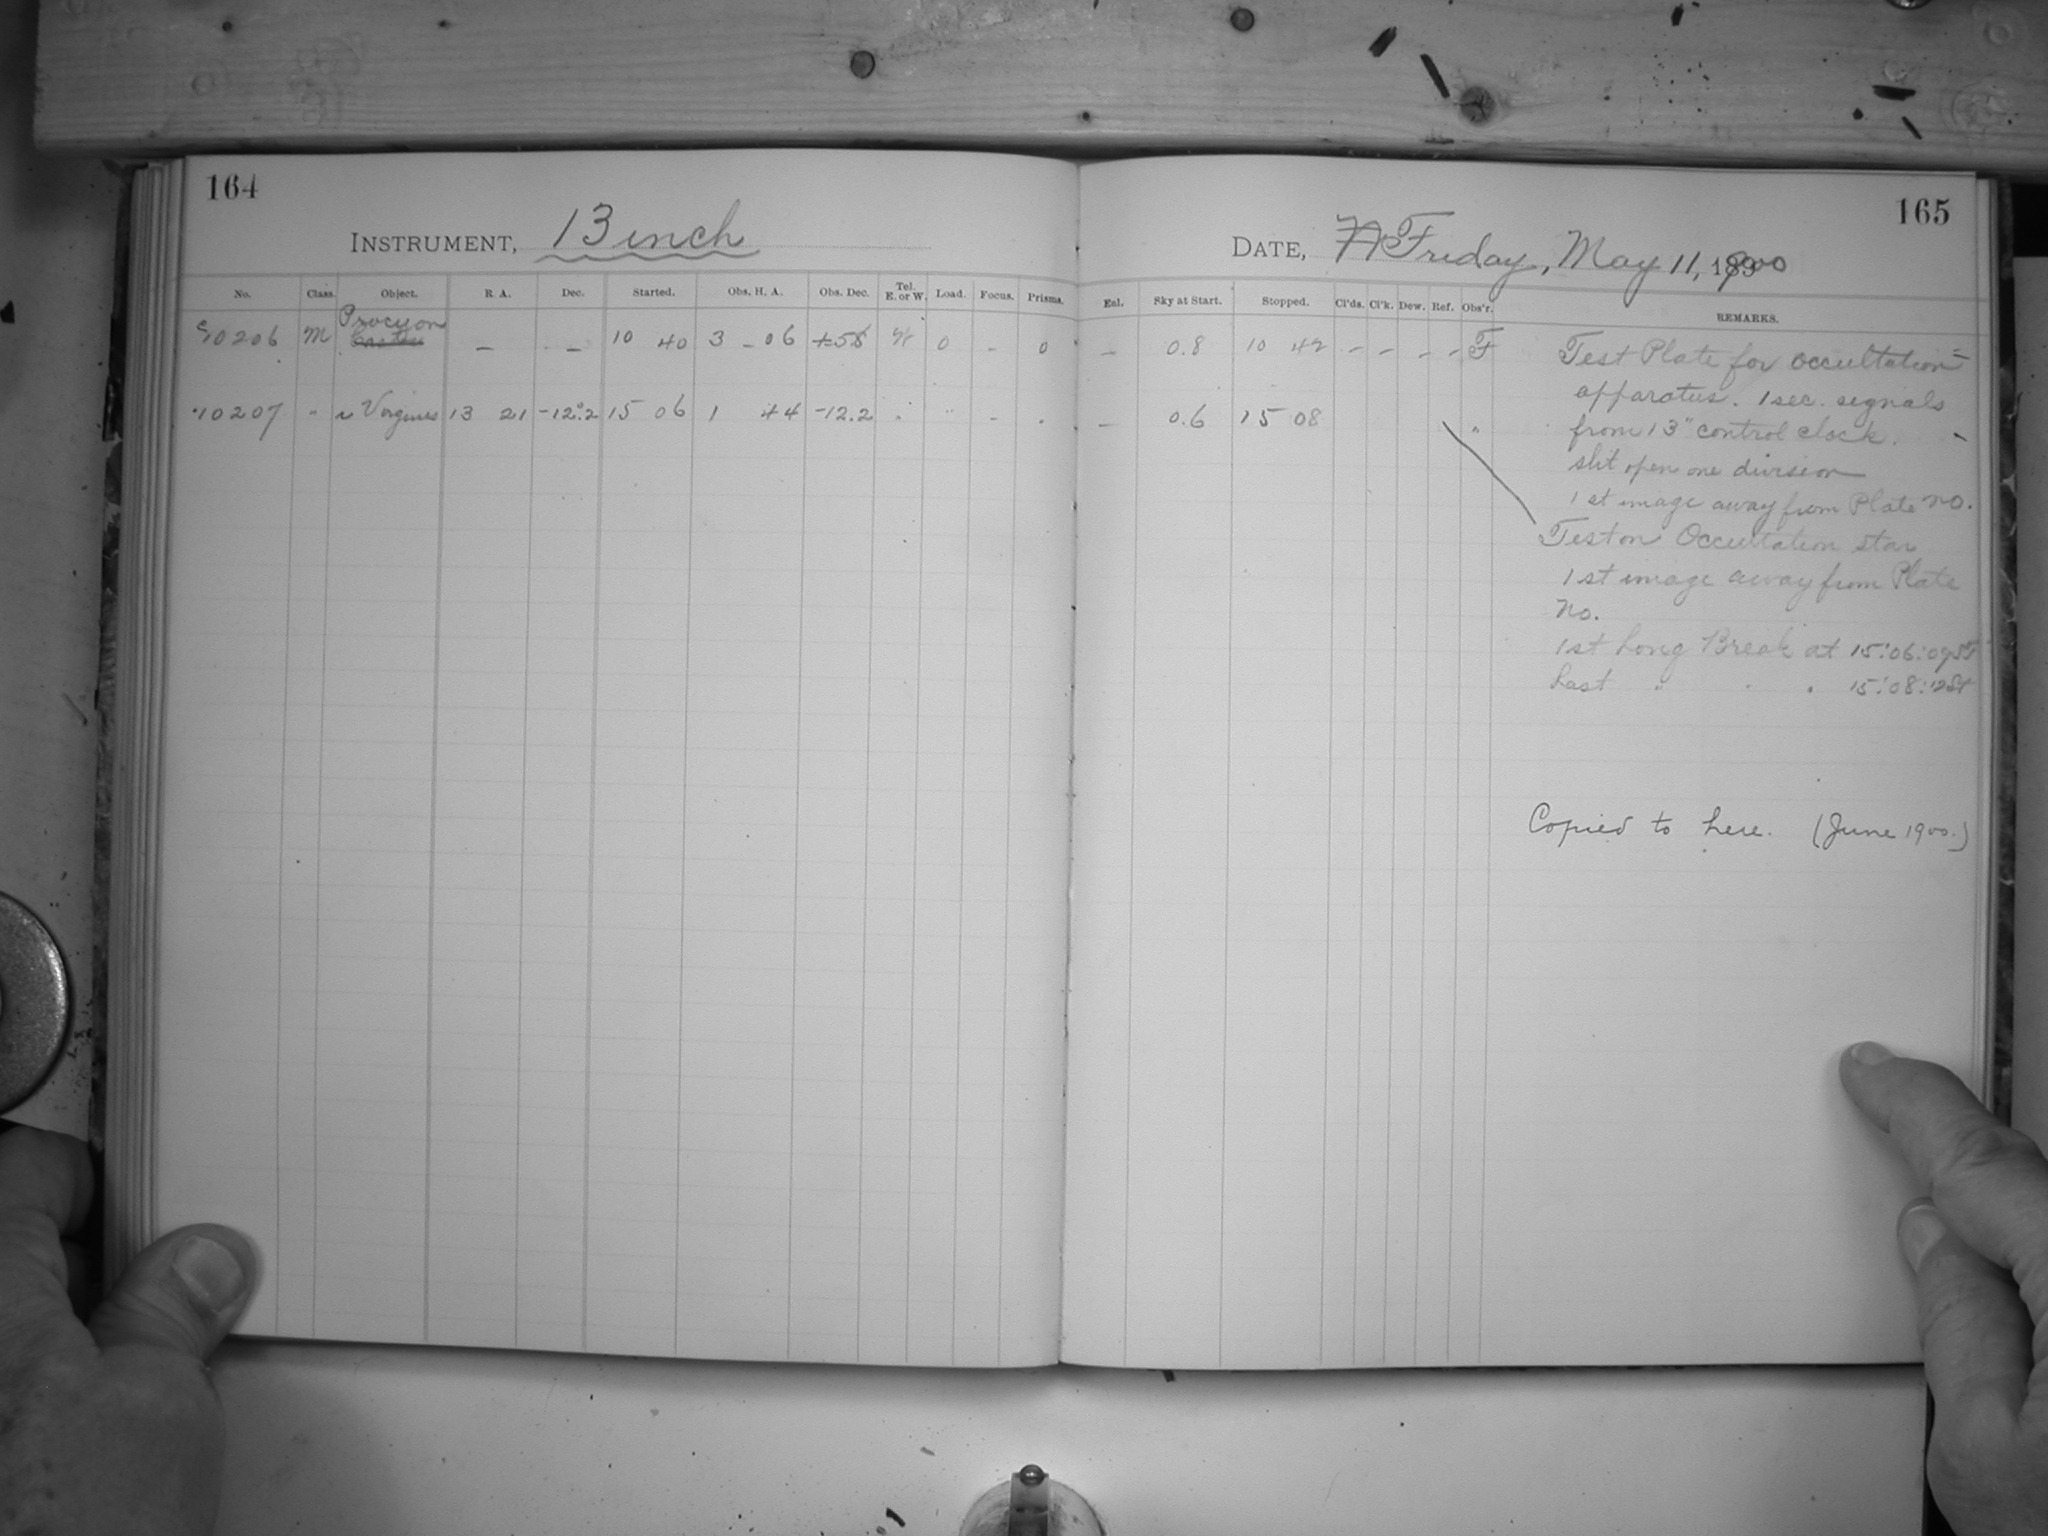 164
INSTRUMENT, 13 inch
No. Class. Object. R. A. Dec. Started. Obs. H. A. Obs. Dec. Tel. E. or W. Load. Focus. Prisms.
Procyon
10206 M — — 10 40 3 – 06 0 – 0
10207 " Virginis 13 21 -12°.2 15 06 1 44 -12.2 " " – "
165
DATE, Friday, May 11, 1900
Enl. Sky at Start. Stopped. Cl'ds. Cl'k. Dew. Ref. Obs'r. REMARKS.
— 0.8 10 42 – – – – F Test Plate for occultation
apparatus. 1 sec. signals
— 0.6 15 08 " from 13" control clock.
slit open one division
1st image away from Plate no.
Test on Occultation star
1st image away from Plate
No.
1st Long Break at 15:06:07 ST
Last " " " 15:08:12 ST
Copied to here. (June 1900.)